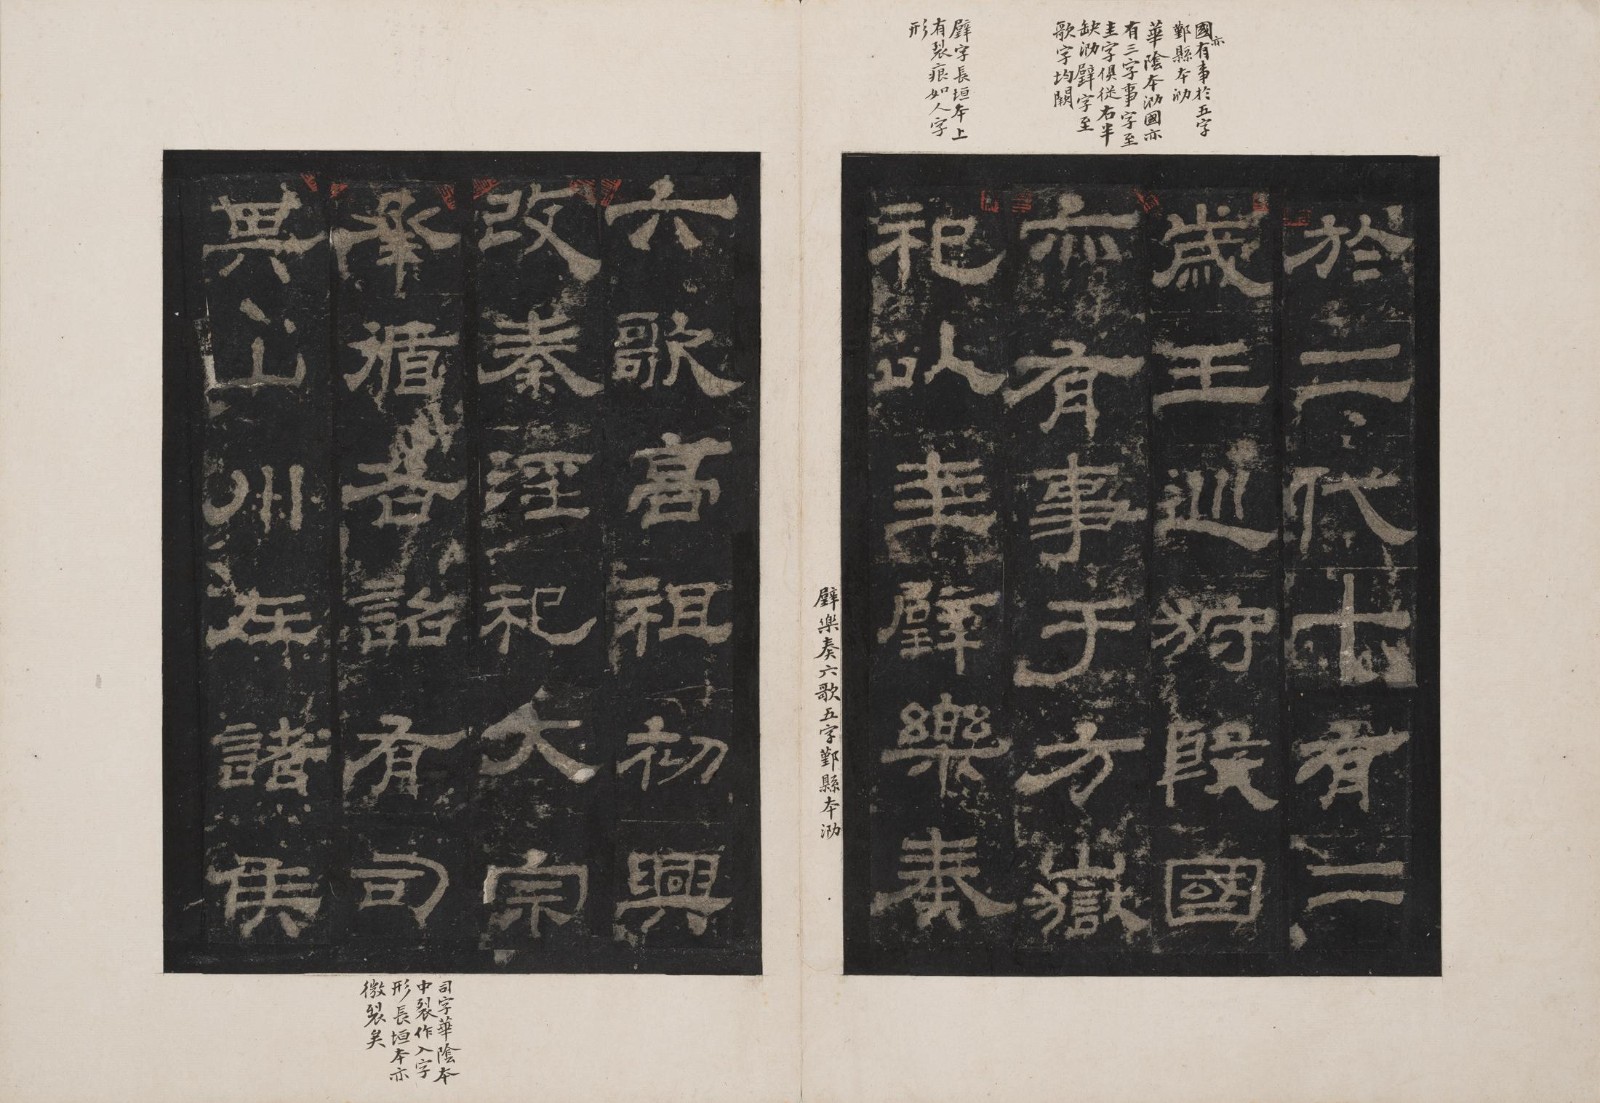 國亦有事於五字
鄞縣本泐
華陰本泐國亦
有三字事字至
圭字俱從右半
缺泐璧字至
歌字均闕
璧字長垣本上
有裂痕如人字
形
於二代十有二
歲王巡狩殷國
亦有事于方嶽
祀以圭璧樂奏
璧樂奏六歌五字鄞縣本泐
六歌高祖初興
改秦淫祀大宗
承循各詔有司
其山川在諸侯
司字華陰本
中裂作入字
形長垣本亦
微裂矣